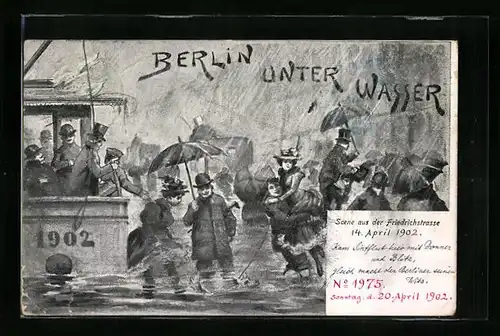 BERLIN UNTER WASSER
1902
Scene aus der Friedrichstrasse
14. April 1902.
Kam Sintflut hier mit Donner
und Blitz,
gleich macht der Berliner seinen
Witz.
No 1975.
Sonntag, d. 20. April 1902.